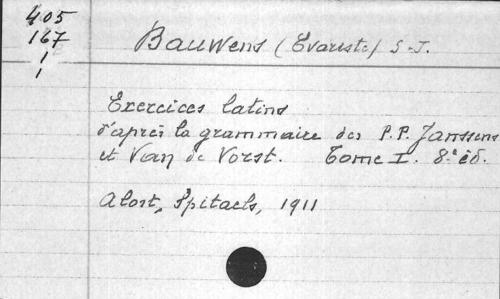 405
167
1
1
Bauwens (Évariste) S-J.
Exercices latins
d'après la grammaire des P.P. Janssens
et Van de Vorst. Tome I. 8e éd.
Alost, Spitaels, 1911